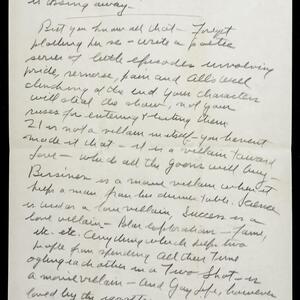 is dosing away—
But you know all that — Forget
plotting per se — write a poetic
series of little episodes involving
pride, remorse, pain and Alls Well
climbing at the end your characters
will steal the show, not your
ruses for entering & exiting them
21 is not a villain in itself you havent
made it that — it is a villain toward
love — which all the goons will buy —
Business is a movie villain when it
keeps a man from his dinner table. Science
is under a love villain, Success is a
love villain — Polar explorations — Fame,
etc. etc. Everything which keeps two
people from spending all their time
ogling each other in a Two Shot — is
a movie villain — and Gay Life, however
loved by the